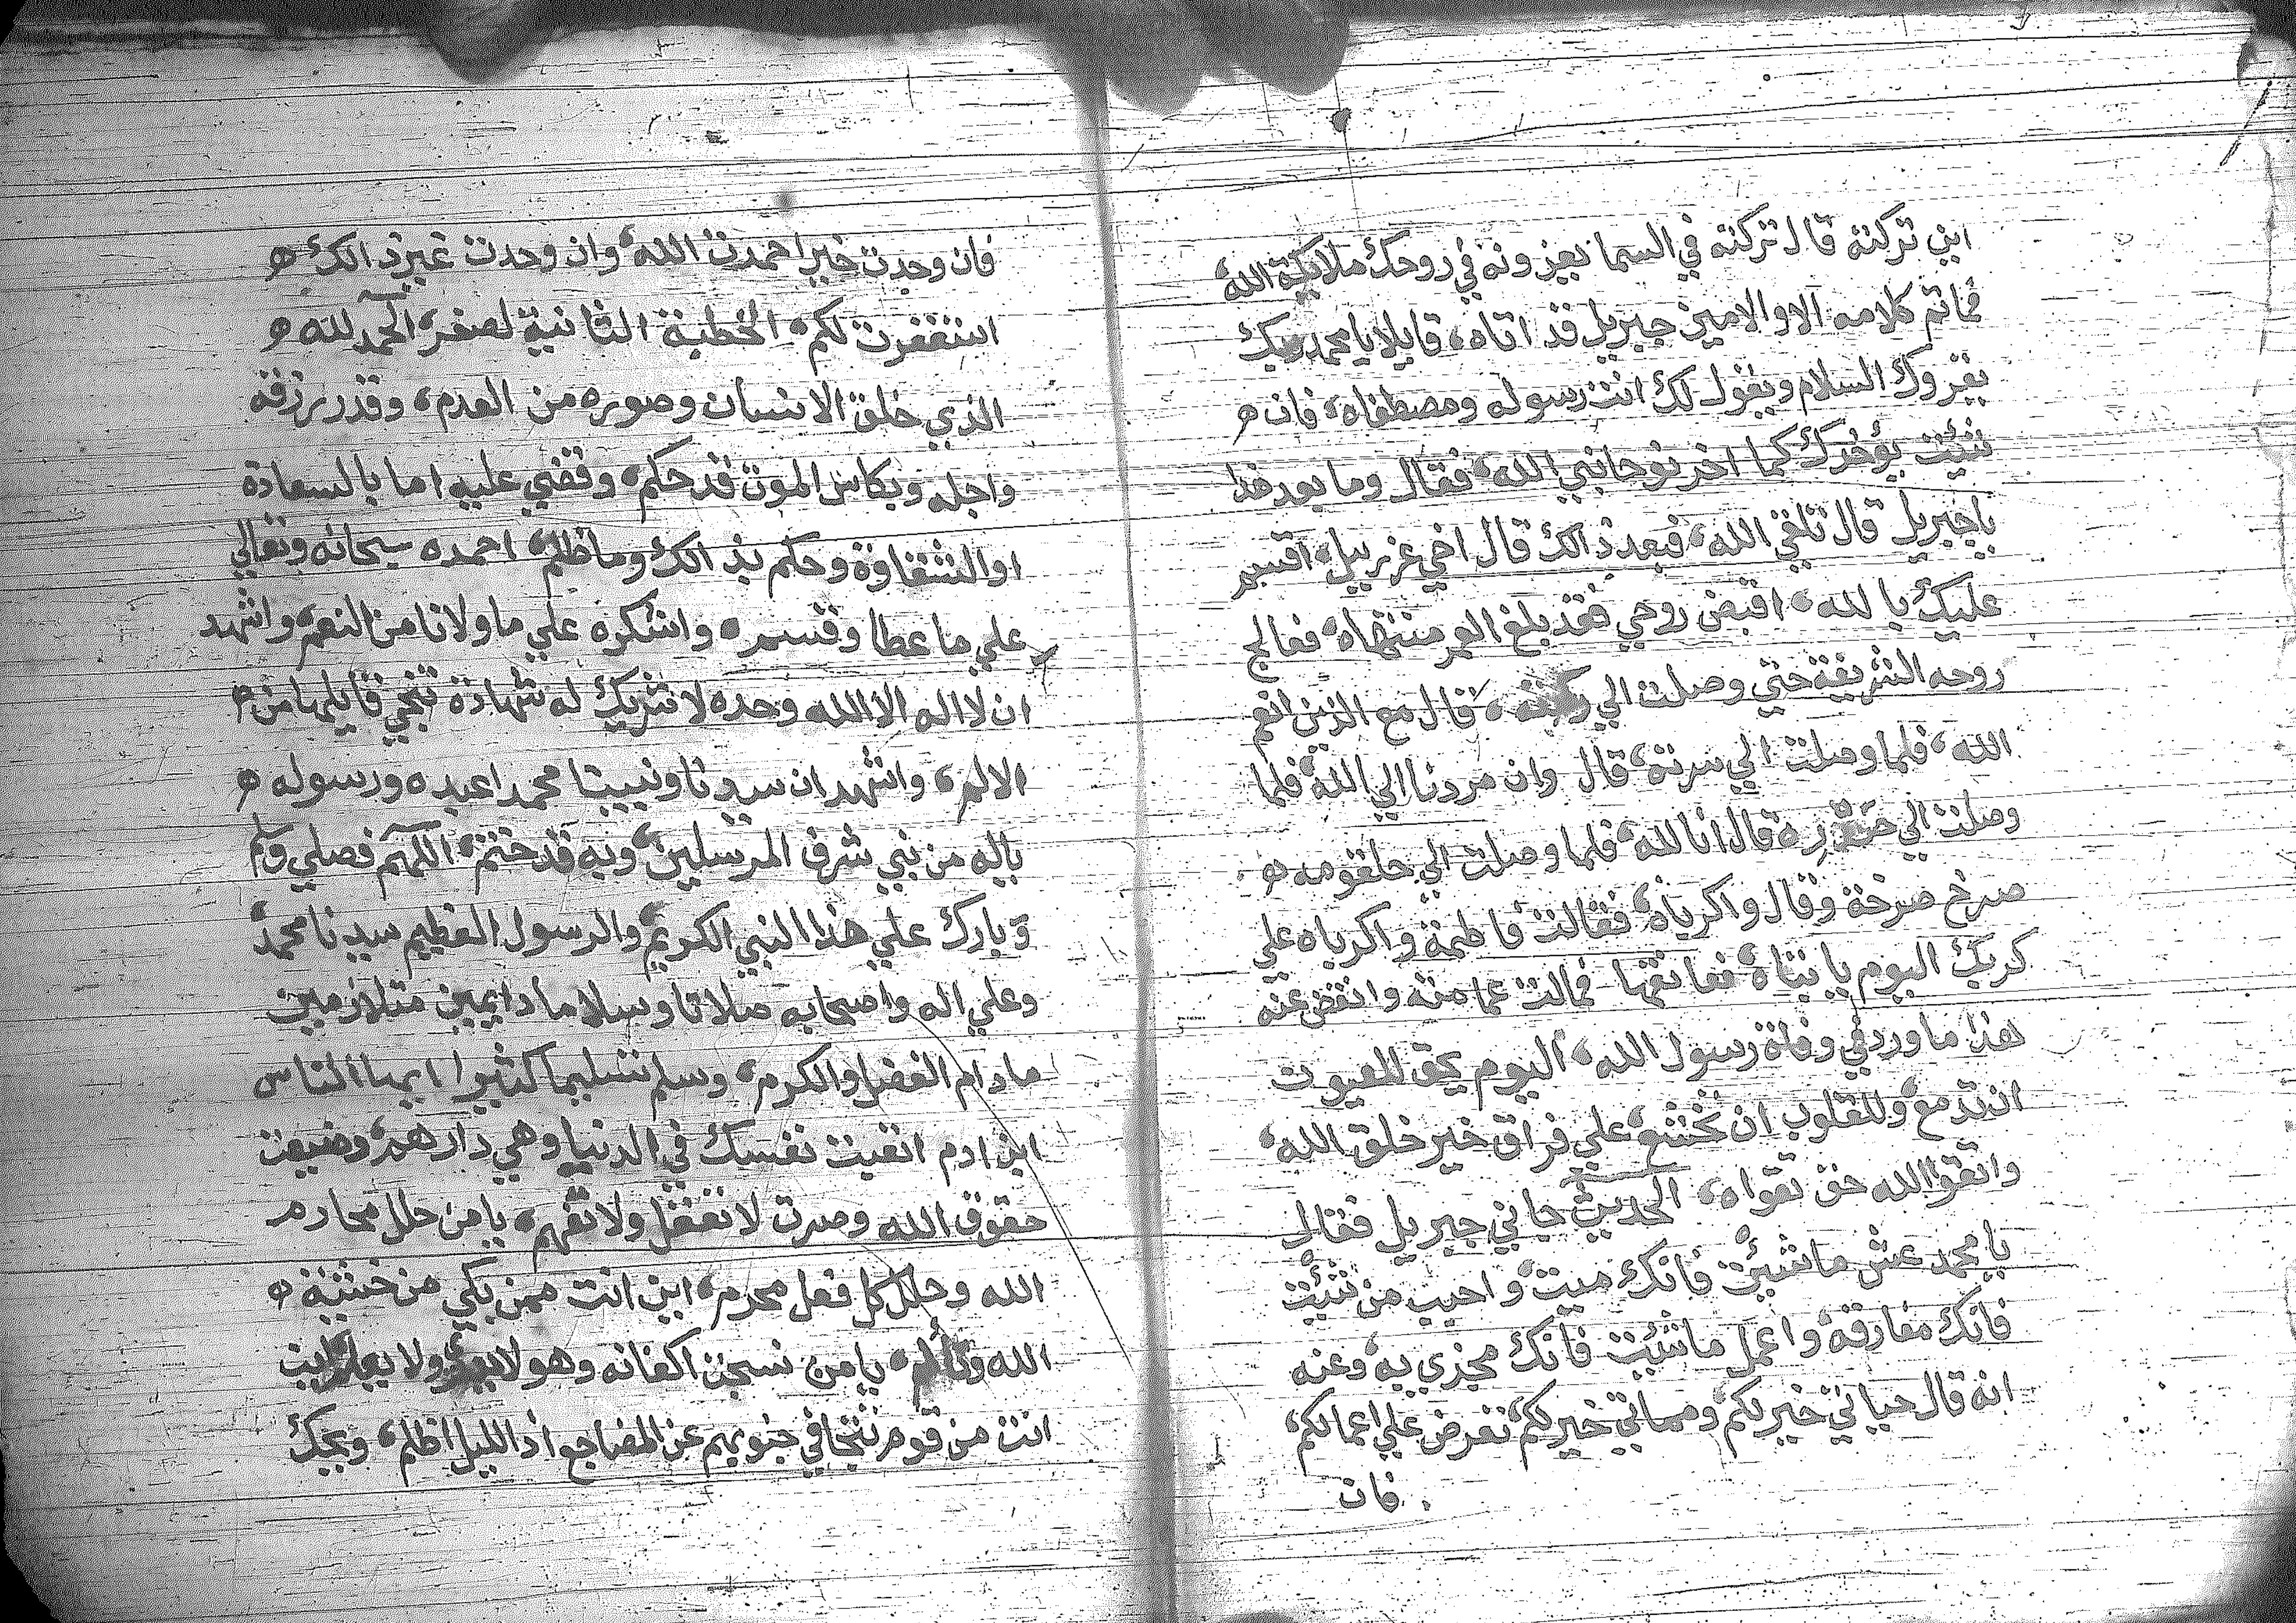 اين تركته قال تركته في السما يعزونه في روحك ملايكة الله
فماتم كلامه الاوالامين جبريل قد اتاه، قايلا يا محمد ربك
يقروك السلام ويقول لك انت رسوله ومصطفاه، فان ه
شيت يؤخرك كما اخر نوحا نبي الله، فقال وما بعد هذا
يا جبريل قال تلقي الله، فبعد ذالك قال اخي عزرييل، اقسم
عليك بالله، اقبض روحي فقد بلغ العمر منتهاه، فعالج
روحه الشريفة حتي وصلت الي ركبته، قال مع الذين انعم
الله، فلما وصلت الي سرته، قال وان مردنا الي الله، فلما
وصلت الي صدره قال انا لله، فلما وصلت الي حلقومه ه
صرخ صرخة وقال واكرباه، فقالت فاطمة واكرباه علي
كربك اليوم يا بتاه، فعانقها فمالت عمامته وانقض عنه
هذا ما ورد في وفاة رسول الله، اليوم يحق للعيون
ان تدمع، وللقلوب ان تخشع، علي فراق خير خلق الله،
واتقوا الله حق تقواه، الحديث جاني جبريل فقال
يا محمد عش ما شيت فانك ميت، واحبب من شيت
فانك مفارقه، واعمل ما شيت فانك مجزي به، وعنه
انه قال حياتي خير لكم، ومماتي خير لكم، تعرض علي اعمالكم،
فان
فان وجدت خيرا حمدت الله، وان وجدت غير ذالك ه
استغفرت لكم، الخطبة الثانية لصفر، الحمد لله ه
الذي خلق الانسان وصوره من العدم، وقدر رزقه
واجله وبكاس الموت قد حكم، وقضي عليه اما بالسعادة
او الشقاوة وحكم بذالك وما ظلم، احمده سبحانه وتعالي
علي ما عطا وقسم، واشكره علي ما ولانا من النعم، واشهد
ان لا اله الا الله وحده لا شريك له شهادة تنجي قايلها من ه
الالم، واشهد ان سيدنا ونبينا محمدا عبده ورسوله ه
ياله من نبي شرف المرسلين، وبه قد ختم، اللهم فصلي وسلم
وبارك علي هذا النبي الكريم، والرسول العظيم سيدنا محمد،
وعلي اله واصحابه صلاتا وسلاما دايمين متلازمين
مادام الفضل والكرم، وسلم تسليما كثيرا ايها الناس
ابن ادم اتعبت نفسك في الدنيا وهي دار هم، وضيعت
حقوق الله وصرت لا تعقل ولا تفهم، يا من حلل محارم
الله وحلل كل فعل محرم، اين انت ممن بكي من خشية ه
الله وتألم، يا من نسجت اكفانه وهو لا ولا يعلم اين
انت من قوم تتجافي جنوبهم عن المضاجع اذ الليل اظلم، ويحك